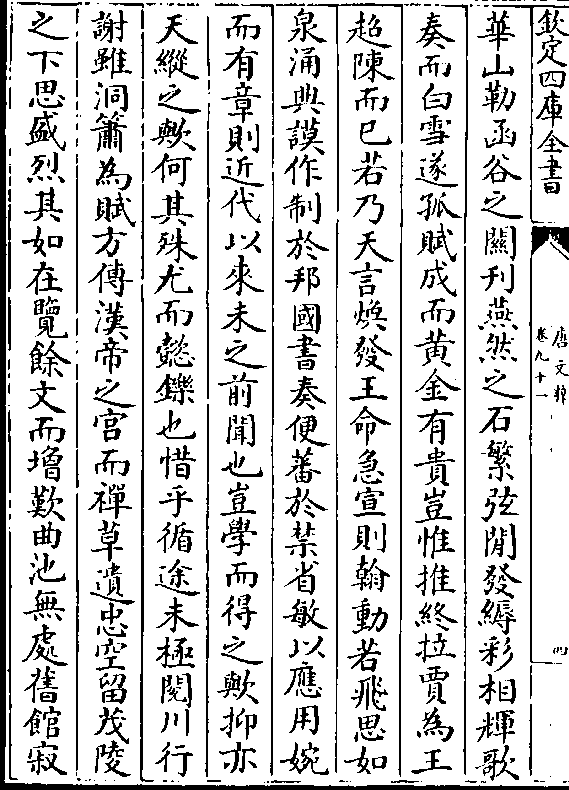 欽定四庫全書
唐文粹
卷九十一
四
華山勒函谷之關刋燕然之石繁弦閒發縟彩相輝歌
奏而白雪遂孤賦成而黄金有貴豈惟推終拉賈為王
超陳而已若乃天言煥發王命急宣則翰動若飛思如
泉涌典謨作制於邦國書奏便蕃於禁省敏以應用婉
而有章則近代以來未之前聞也豈學而得之歟抑亦
天縱之歟何其殊尤而懿鑠也惜乎循途未極閱川行
謝雖洞簫為賦方傳漢帝之宫而禪草遺忠空留茂陵
之下思盛烈其如在覽餘文而增歎曲池無處舊館寂